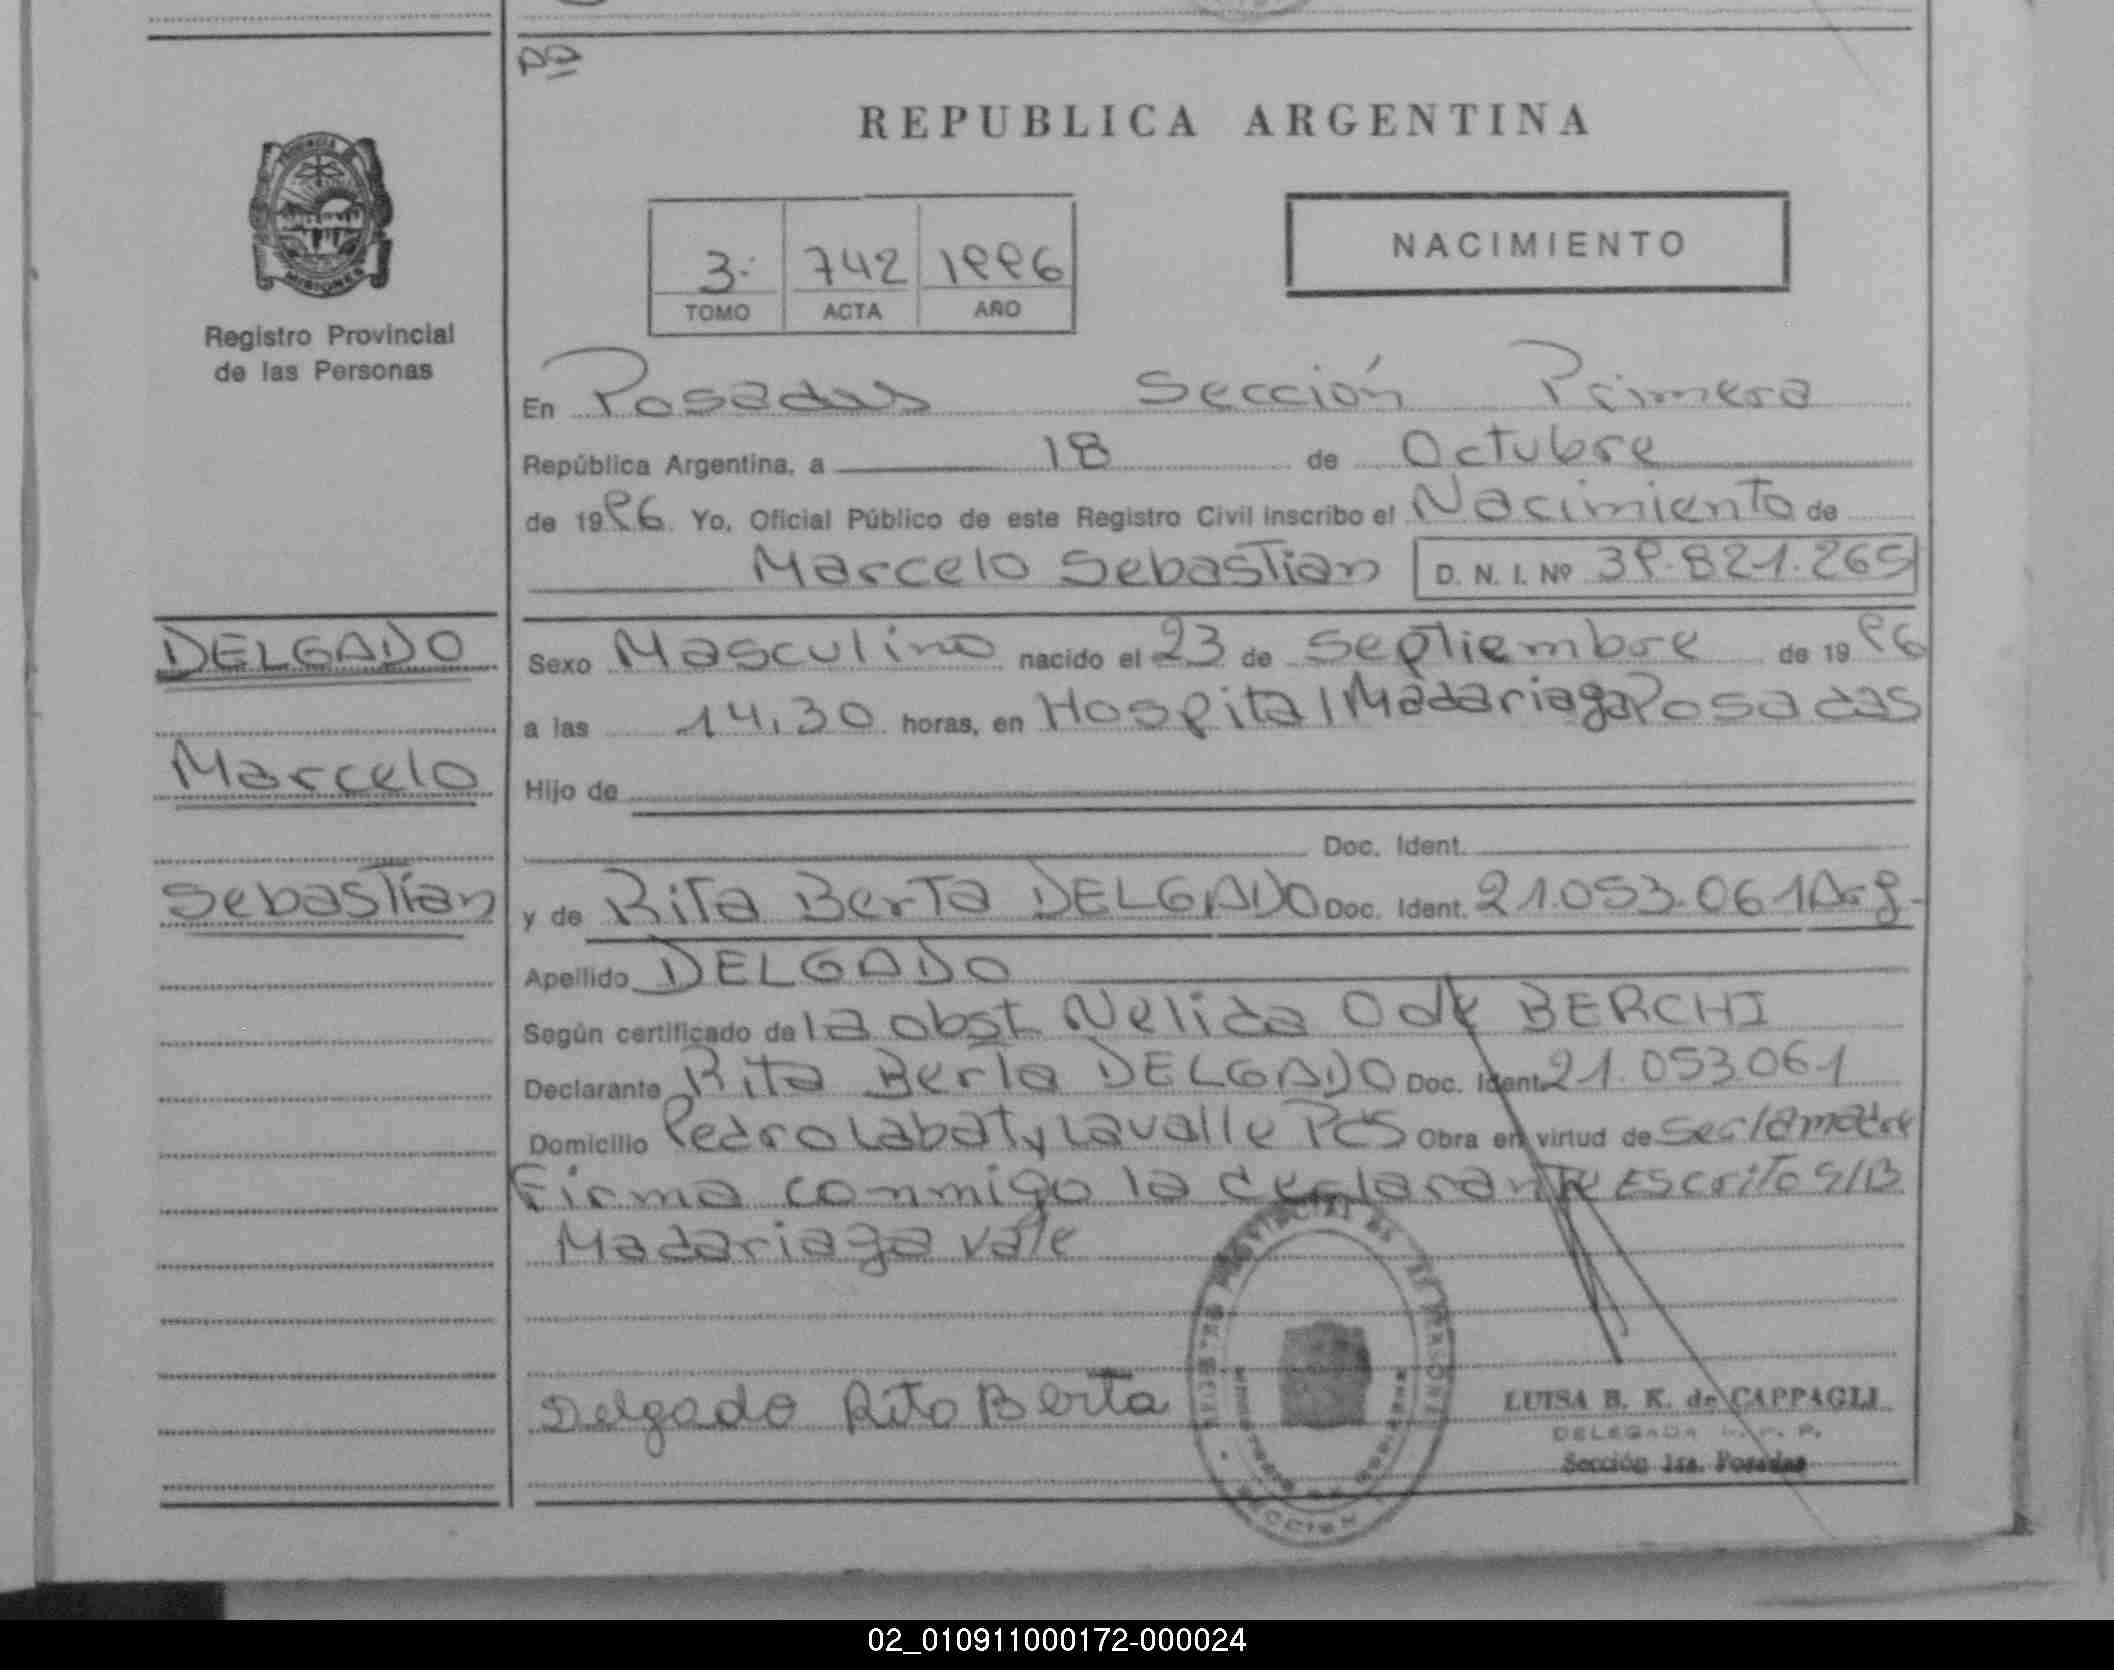 PROVINCIA
MISIONES
Registro Provincial
de las Personas
DELGADO
Marcelo
Sebastian
REPUBLICA ARGENTINA
3. 742 1996
TOMO ACTA AÑO
NACIMIENTO
En Posadas Sección Primera
República Argentina, a 18 de Octubre
de 1996. Yo, Oficial Público de este Registro Civil inscribo el Nacimiento de
Marcelo Sebastian D. N. I. Nº 39.821.265
Sexo Masculino nacido el 23 de Septiembre de 1996
a las 14,30 horas, en Hospital Madariaga Posadas
Hijo de
Doc. Ident.
y de Rita Berta DELGADO Doc. Ident. 21.053.061 Arg.
Apellido DELGADO
Según certificado de la obst. Nelida Ode BERCHI
Declarante Rita Berta DELGADO Doc. Ident. 21.053.061
Domicilio Pedro Labat y Lavalle Pdas Obra en virtud de ser la madre
Firma conmigo la declarante Escrito S/B
Madariaga vale
Delgado Rita Berta
LUISA B. K. de CAPPAGLI
DELEGADA R. P. P.
Sección 1ra. Posadas
02_010911000172-000024